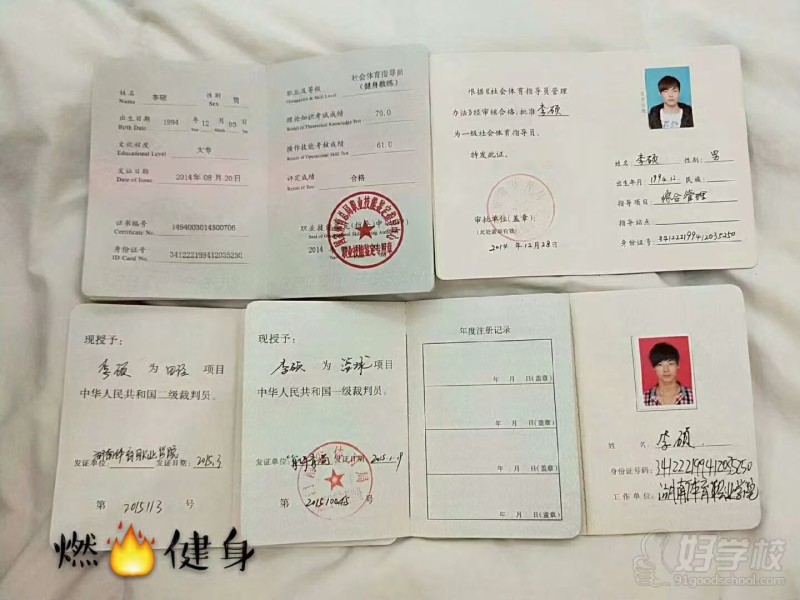 姓名 李硕 性别 男
Name Sex
出生日期 1994 年 12 月 03 日
Birth Date
文化程度 大专
Educational Level
发证日期 2014年08月20日
Date of Issue
证书编号 1494003014300706
Certificate No.
身份证号 341222199412035250
ID Card No.
职业及等级 社会体育指导员
Occupation & Skill Level (健身教练)
理论知识考试成绩 70.0
Result of Theoretical Knowledge Test
操作技能考核成绩 61.0
Result of Operational Skill Test
评定成绩 合格
Result of Test
2014 年
职业技能鉴定专用章
根据《社会体育指导员管理
办法》经审核合格,批准 李硕
为一级社会体育指导员。
特发此证。
审批单位(盖章):
(此处盖章有效)
2014 年 12月 28日
姓名 李硕 性别: 男
出生年月: 1994.12. 民族:
指导项目: 综合管理
指导站点:
身份证号: 341222199412035250
现授予:
李硕 为 田径 项目
中华人民共和国二级裁判员。
湖南体育职业学院
发证单位: 发证日期: 2015.3
第 2015113 号
现授予:
李硕 为 篮球 项目
中华人民共和国一级裁判员。
发证单位: 发证日期: 2015.1.9
第 号
年度注册记录
年 月 日(盖章)
年 月 日(盖章)
年 月 日(盖章)
年 月 日(盖章)
姓名: 李硕
身份证号码: 341222199412035250
工作单位: 湖南体育职业学院
燃🔥健身
好学校
91goodschool.com